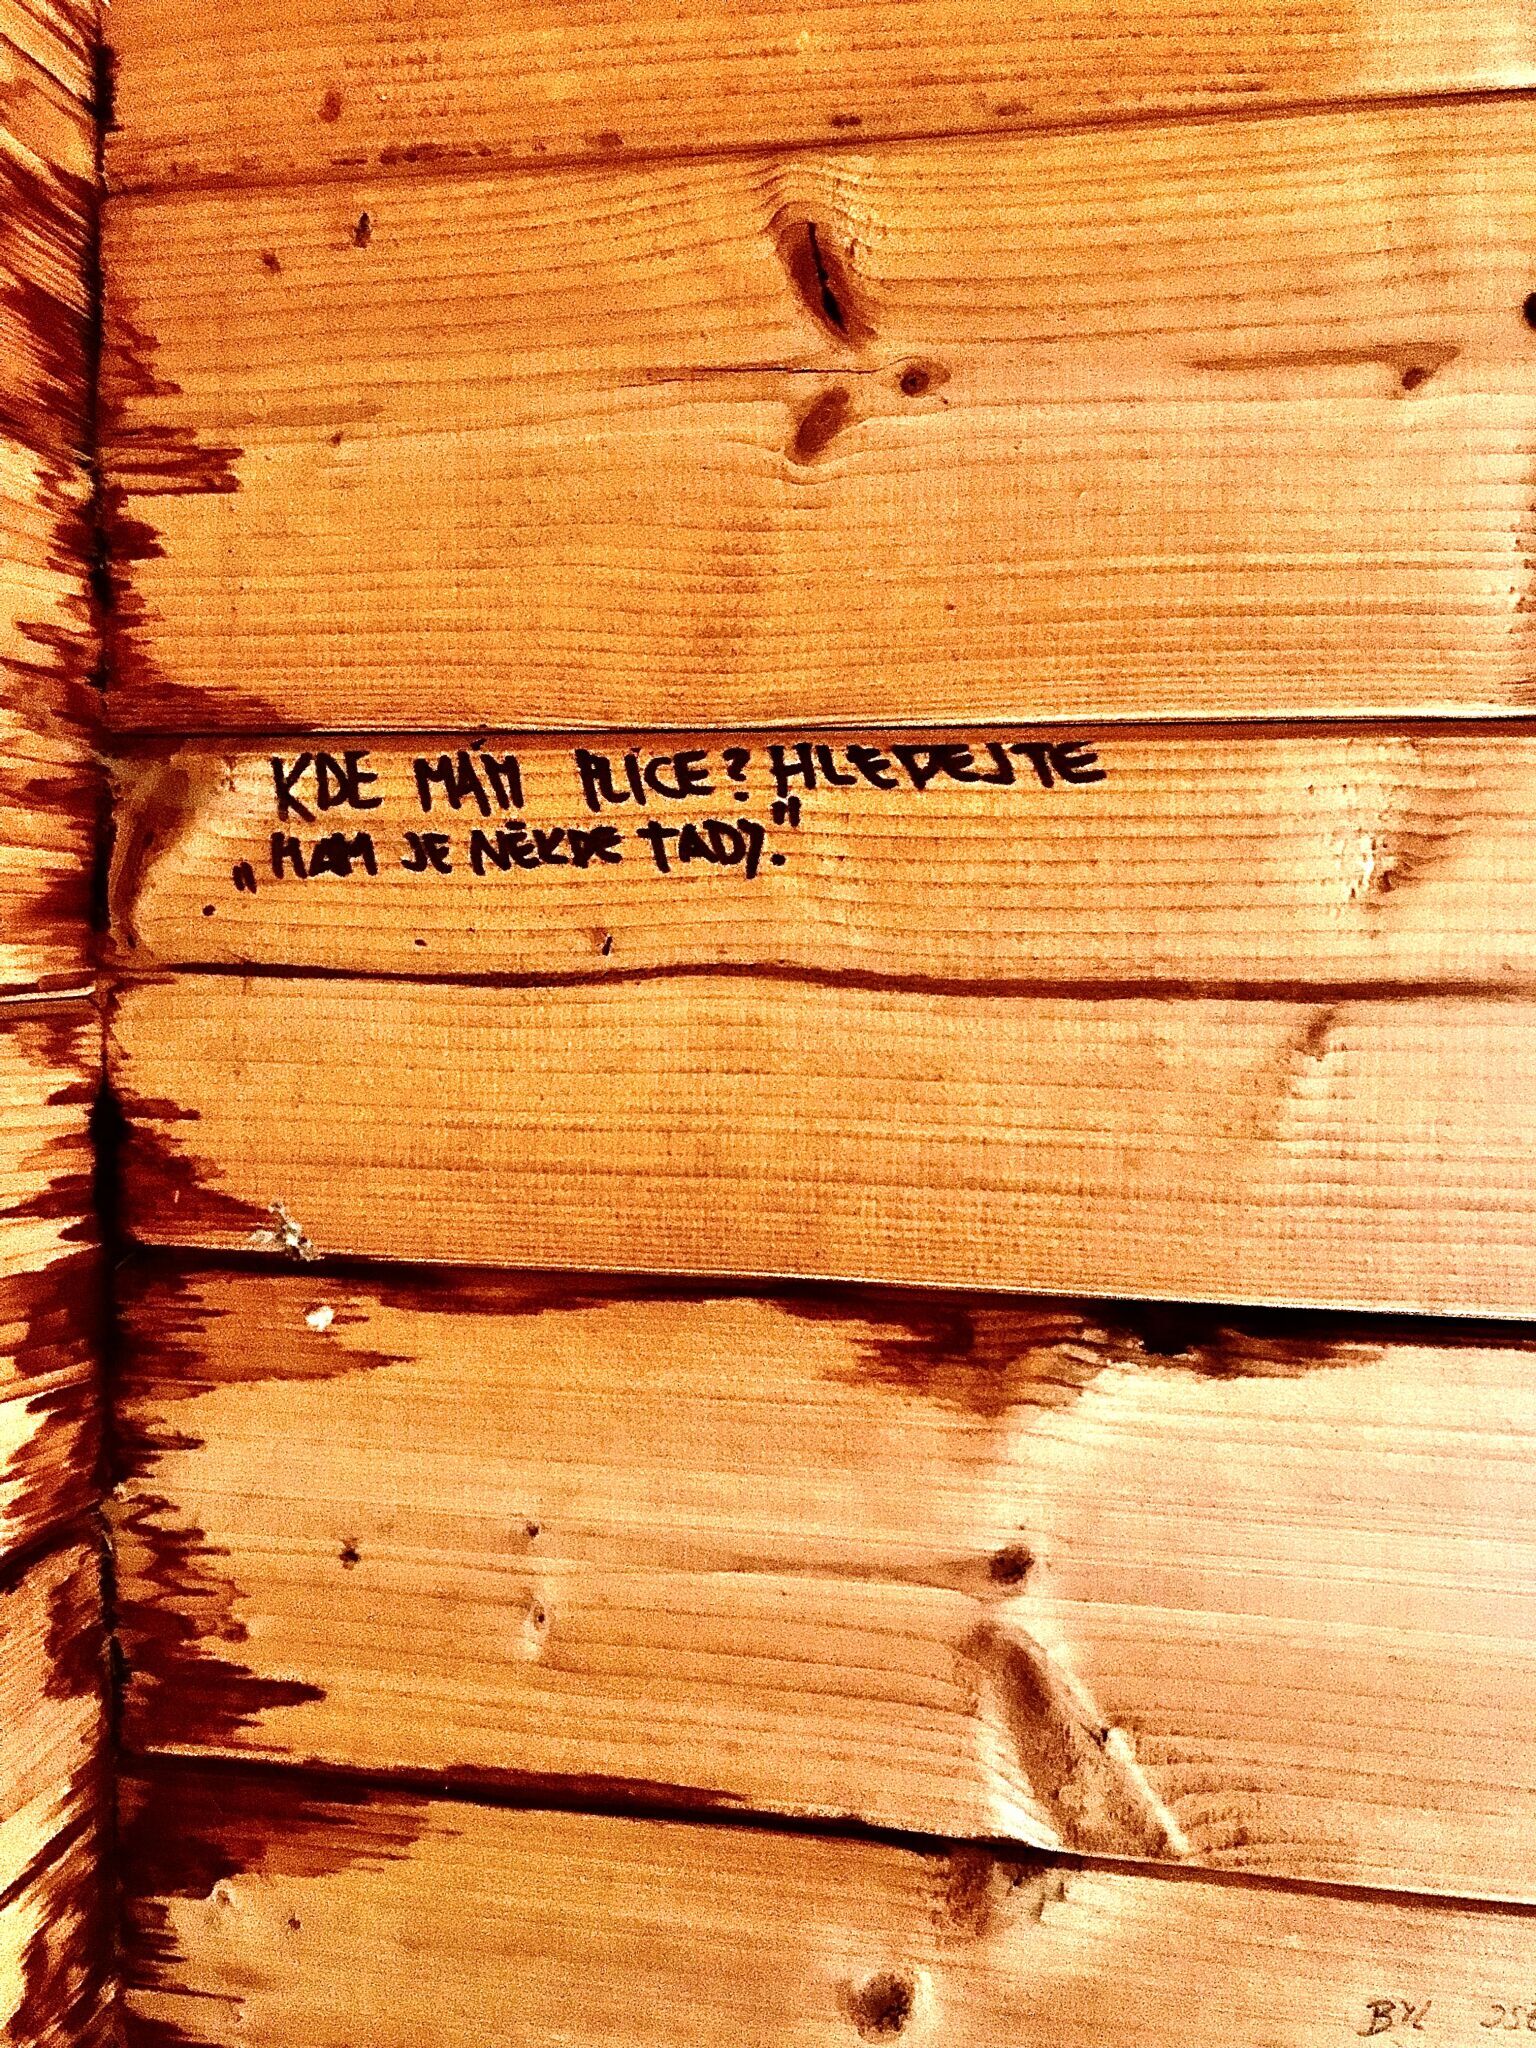 KDE MÁM PLÍCE? HLEDEJTE
„MÁM JE NĚKDE TADY."
BYL JSE